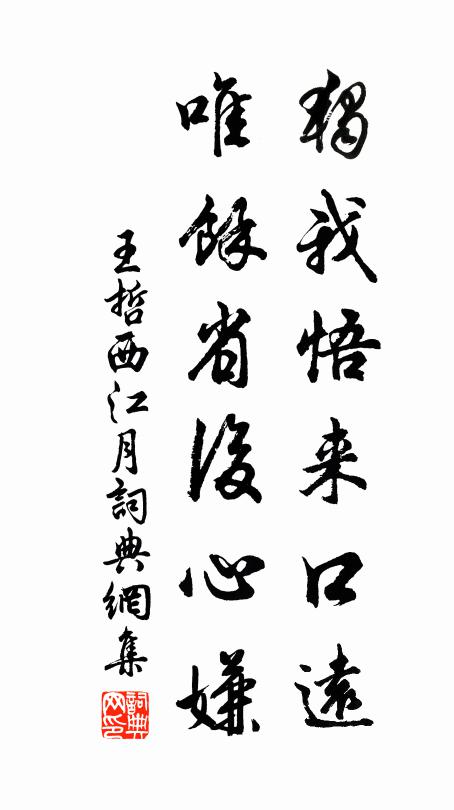 獨我悟来口遠
唯餘省後心嫌
王哲西江月詞典網集
詞典网印